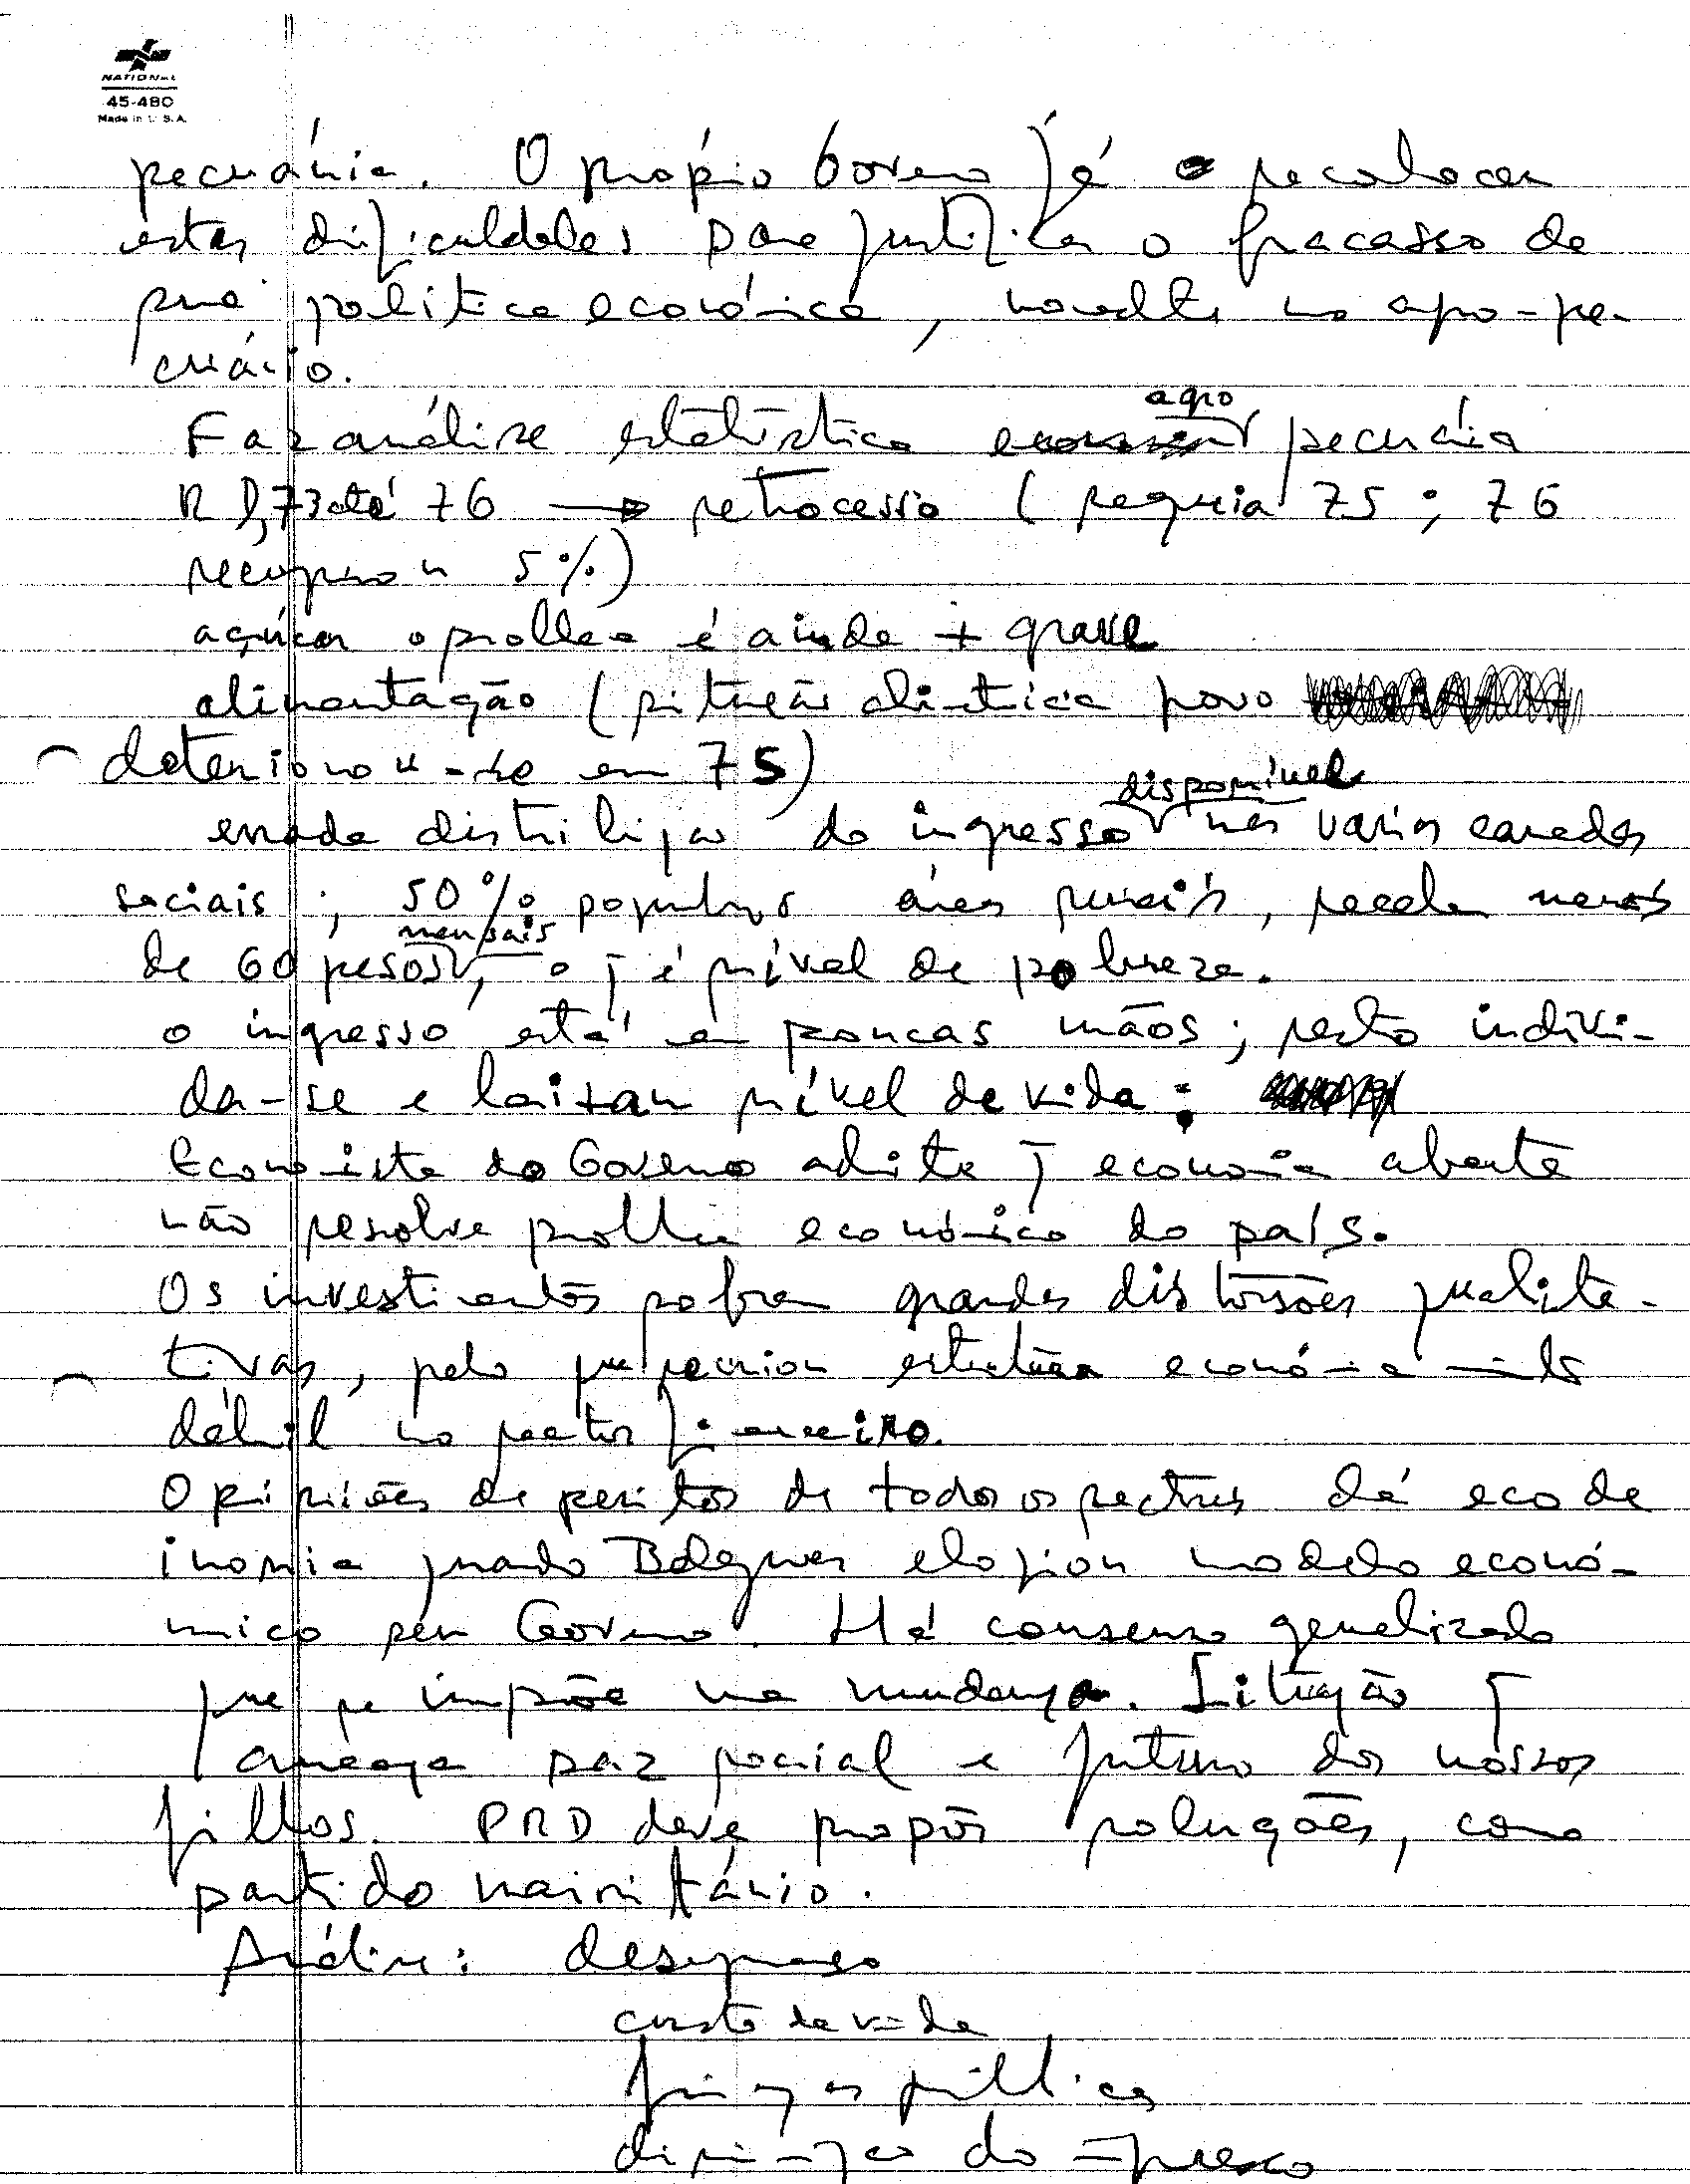 NATIONAL
45-480
Made in U.S.A.
pecuária. O próprio Governo já o reconhecer
estas dificuldades para justificar o fracasso de
sua política económica, no agro-pe-
cuário.
Faz análise estatística agro pecuária
R D, 73 até 76 → retrocesso (sequia 75; 76
recuperou 5%)
açúcar o problema é ainda + grave
alimentação (situação alimentícia povo
deteriorou-se em 75)
errada distribuição do ingresso disponível nas várias camadas
sociais; 50% população áreas rurais, recebe menos
de 60 pesos mensais, o q é nível de pobreza.
o ingresso está em poucas mãos; resto individa-
da-se e baixam nível de vida.
Economista do Governo admite q economia aberta
não resolve problema económico do país.
Os investimentos sofrem grandes distorsões qualita-
tivas, pelo que estrutura económica muito
débil no sector financeiro.
Opiniões de peritos de todos os sectores dá eco de
ironia quando Balaguer elogiou modelo econó-
mico seu Governo. Há consenso generalizado
que se impõe uma mudança. Situação q
ameaça paz social e futuro dos nossos
filhos. PRD deve propor soluções, como
partido maioritário.
Análise: desemprego
custo de vida
finanças públicas
diminuição do ingresso